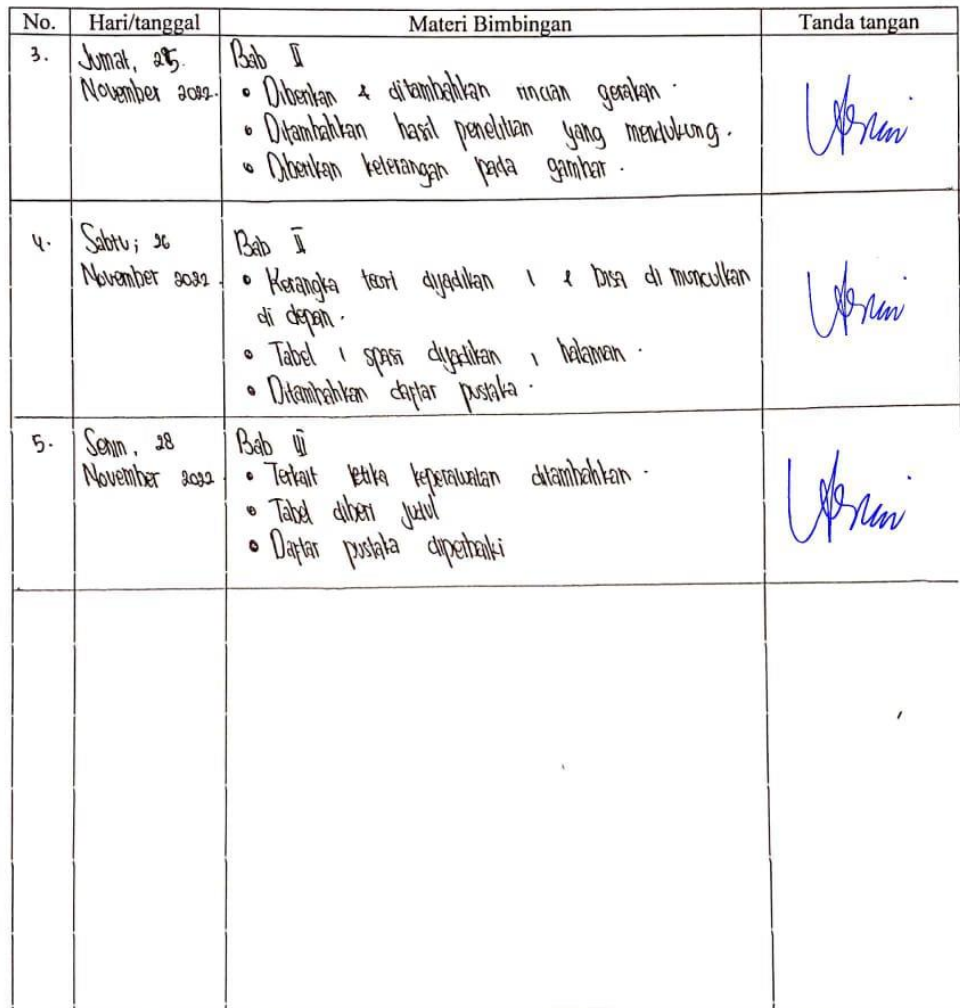 No. Hari/tanggal Materi Bimbingan Tanda tangan
3. Jumat, 25 Bab II
November 2022. • Diberikan & ditambahkan rincian gerakan.
• Ditambahkan hasil penelitian yang mendukung.
• Diberikan keterangan pada gambar.
4. Sabtu; 26 Bab II
November 2022. • Kerangka teori dijadikan 1 & bisa di munculkan
di depan.
• Tabel 1 spasi dijadikan 1 halaman.
• Ditambahkan daftar pustaka.
5. Senin, 28 Bab III
November 2022. • Terkait etika keperawatan ditambahkan.
• Tabel diberi judul
• Daftar pustaka diperbaiki